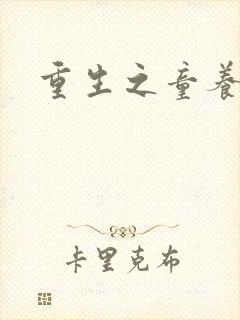 重生之童养
卡里克布